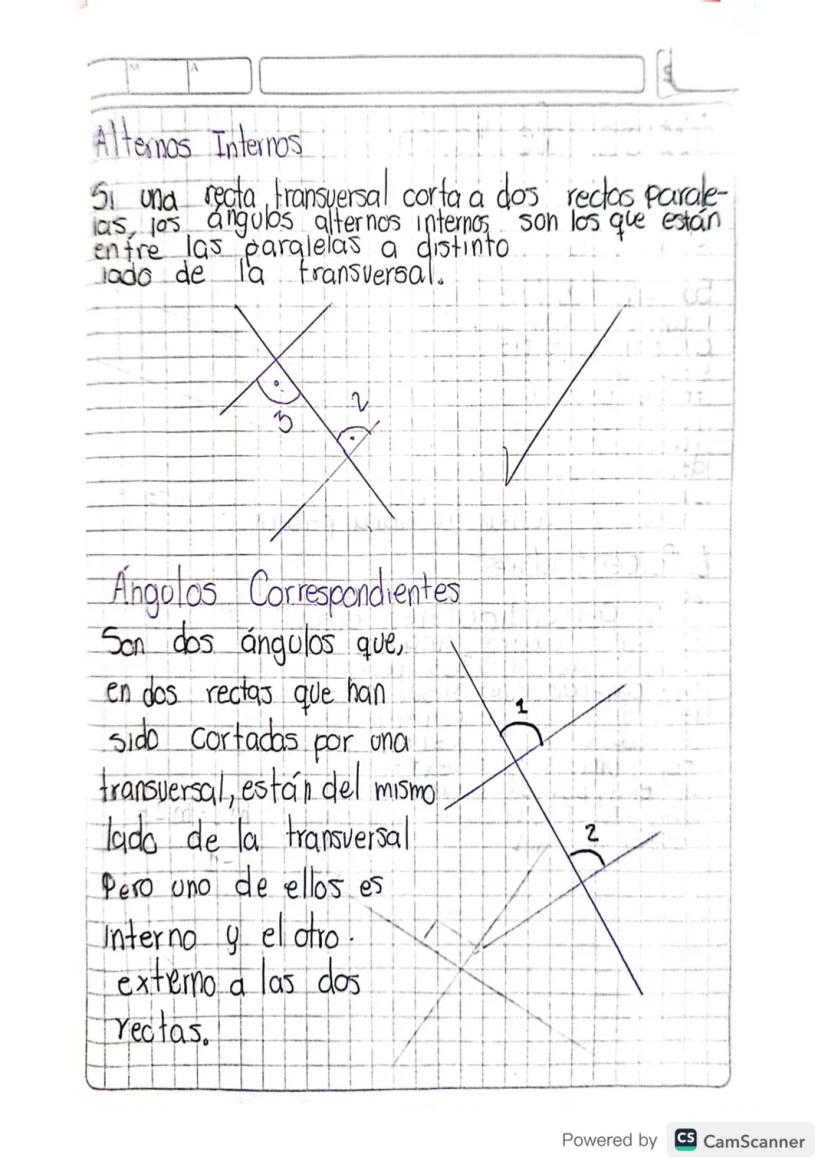 Alternos Internos
Si una recta transversal corta a dos rectas parale-
las, los ángulos alternos internos son los que están
entre las paralelas a distinto
lado de la transversal.
3
2
Ángulos Correspondientes
Son dos ángulos que,
en dos rectas que han
sido cortadas por una
transversal, están del mismo
lado de la transversal
Pero uno de ellos es
interno y el otro.
externo a las dos
rectas.
1
2
Powered by CS CamScanner